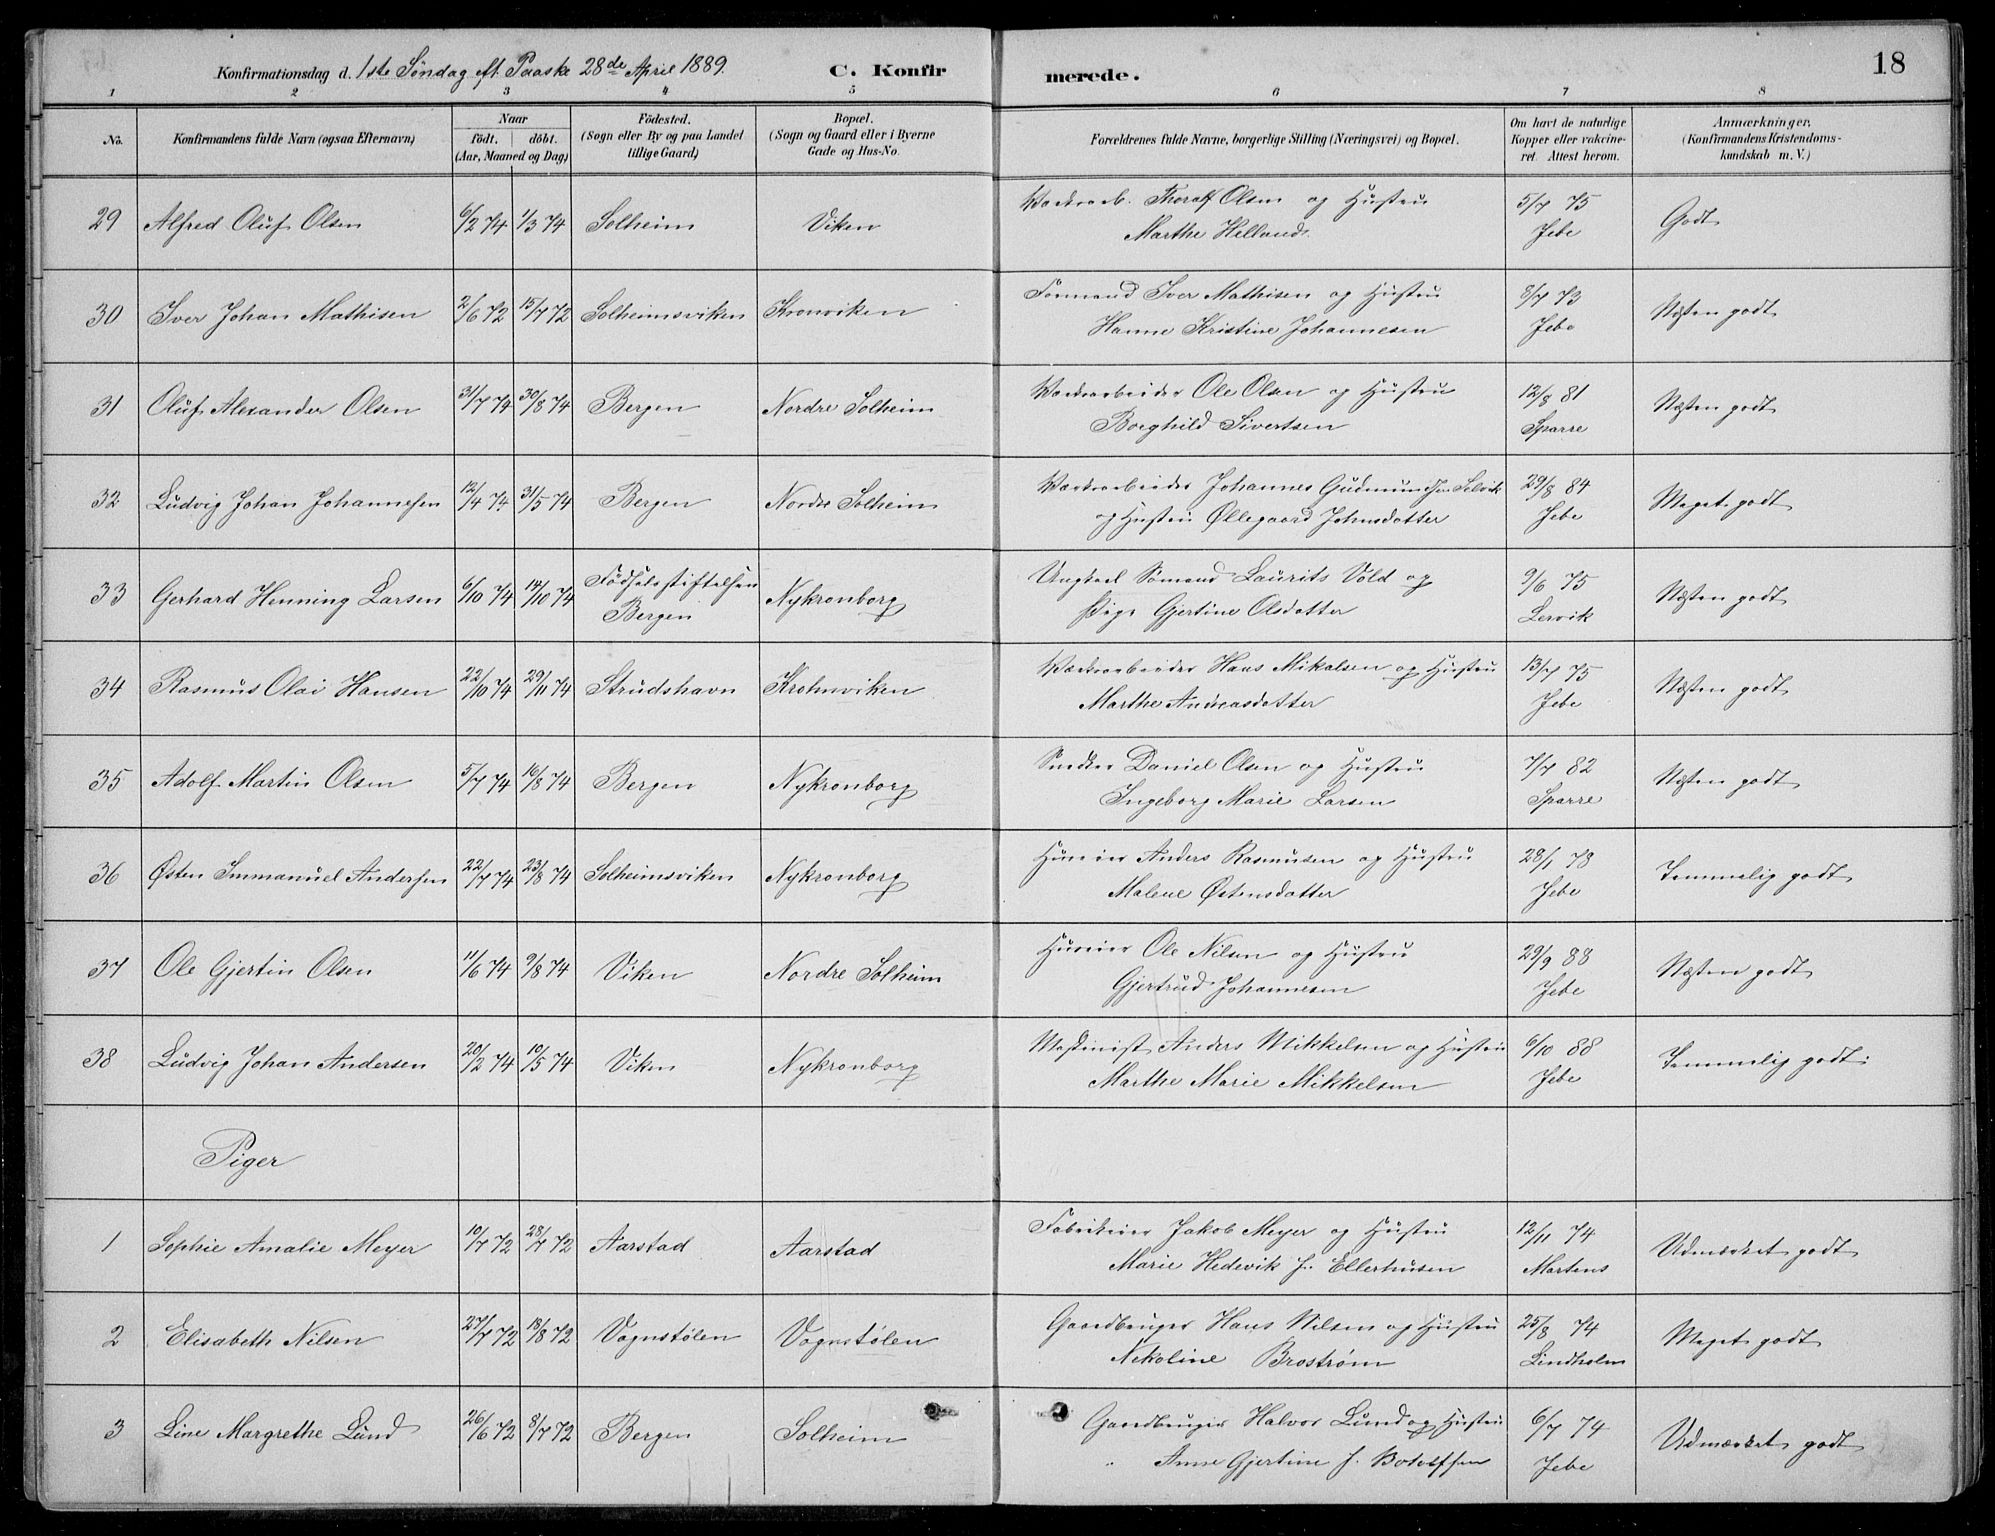 Konfirmationsdag d. 1ste Søndag eft. Paaske 28de April 1889.
C. Konfirmerede.
18
1 2 3 4 5 6 7 8
No.
Konfirmandens fulde Navn (ogsaa Efternavn)
Naar
födt. döbt.
(Aar, Maaned og Dag)
Födested.
(Sogn eller By og paa Landet
tillige Gaard)
Bopæl.
(Sogn og Gaard eller i Byerne
Gade og Hus-No.
Forældrenes fulde Navne, borgerlige Stilling (Næringsvei) og Bopæl.
Om havt de naturlige
Kopper eller vakcine-
ret. Attest herom.
Anmærkninger.
(Konfirmandens Kristendoms-
kundskab m. V.)
29 Alfred Oluf Olsen 6/2 74 1/3 74 Solheim Viken Værksarb. Thoralf Olsen og Hustru 5/7 75 Godt
Marthe Helland. Jebe
30 Iver Johan Mathisen 2/6 72 15/7 72 Solheimsviken Kronviken Formand Iver Mathisen og Hustru 8/7 73 Næsten godt
Hanne Kristine Johannesen Jebe
31 Oluf Alexander Olsen 31/7 74 30/8 74 Bergen Nordre Solheim Værksarbeider Ole Olsen og Hustru 12/8 81 Næsten godt
Borghild Sivertsen Sparre
32 Ludvig Johan Johannesen 12/4 74 31/5 74 Bergen Nordre Solheim Værksarbeider Johannes Gudmundsen Selvik 29/8 84 Meget godt
og Hustru Øllegaard Johnsdatter Jebe
33 Gerhard Henning Larsen 6/10 74 14/10 74 Födselsstiftelsen Nykronborg Ungkarl Sömand Laurits Vold og 9/6 75 Næsten godt
Bergen Pige Gjertine Olsdatter Lervik
34 Rasmus Olai Hansen 22/10 74 29/11 74 Strudshavn Krohnviken Værksarbeider Hans Mikalsen og Hustru 13/7 75 Næsten godt
Marthe Andreasdatter Jebe
35 Adolf Martin Olsen 5/7 74 16/8 74 Bergen Nykronborg Snedker Daniel Olsen og Hustru 7/7 82 Næsten godt
Ingeborg Marie Larsen Sparre
36 Østen Immanuel Andersen 22/7 74 23/8 74 Solheimsviken Nykronborg Huseier Anders Rasmusen og Hustru 28/1 78 Temmelig godt
Malene Østensdatter Jebe
37 Ole Gjertin Olsen 11/6 74 9/8 74 Viken Nordre Solheim Huseier Ole Nilsen og Hustru 29/9 88 Næsten godt
Gjertrud Johannesen Jebe
38 Ludvig Johan Andersen 20/2 74 10/5 74 Viken Nykronborg Maskinist Anders Mikkelsen og Hustru 6/10 88 Temmelig godt
Marthe Marie Mikkelsen Jebe
Piger
1 Sophie Amalie Meyer 10/7 72 28/7 72 Aarstad Aarstad Fabrikeier Jakob Meyer og Hustru 12/11 74 Udmærket godt
Marie Hedevik f. Ellerhusen Martens
2 Elisabeth Nilsen 27/7 72 18/8 72 Vognstølen Vognstølen Gaardbruger Hans Nilsen og Hustru 25/8 74 Meget godt
Nikoline Broström Lindholm
3 Line Margrethe Lund 26/6 72 8/7 72 Bergen Solheim Gaardbruger Halvor Lund og Hustru 6/7 74 Udmærket godt
Anne Gjertine f. Botolfsen Jebe